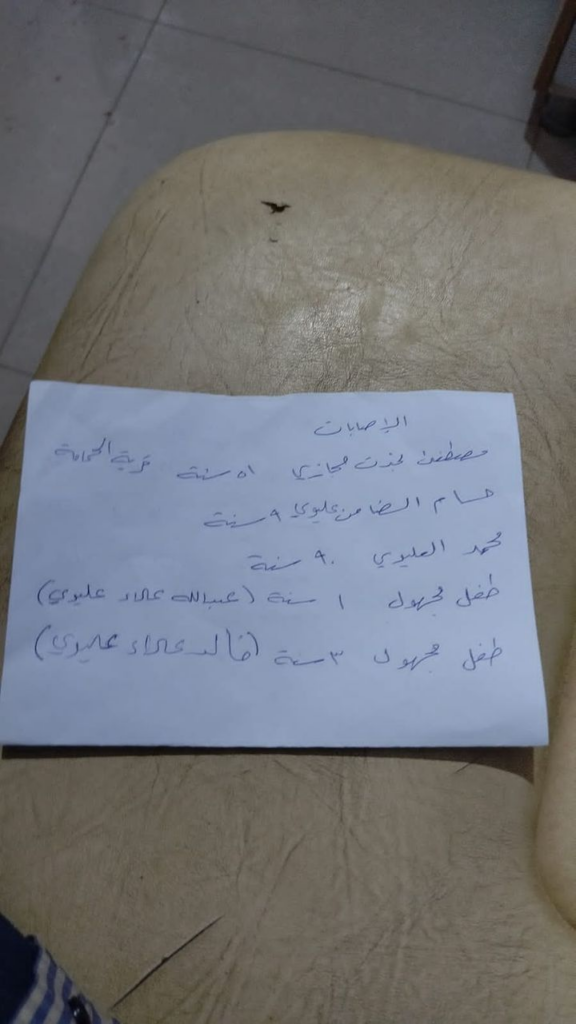 الإصابات
مصطفى حجازي ٥١ سنة قرية الحمامة
حسام الضامن عليوي ٩ سنة
محمد العليوي ٩٠ سنة
طفل مجهول ١ سنة (عبدالله علاء عليوي)
طفل مجهول ٣ سنة (خالد علاء عليوي)